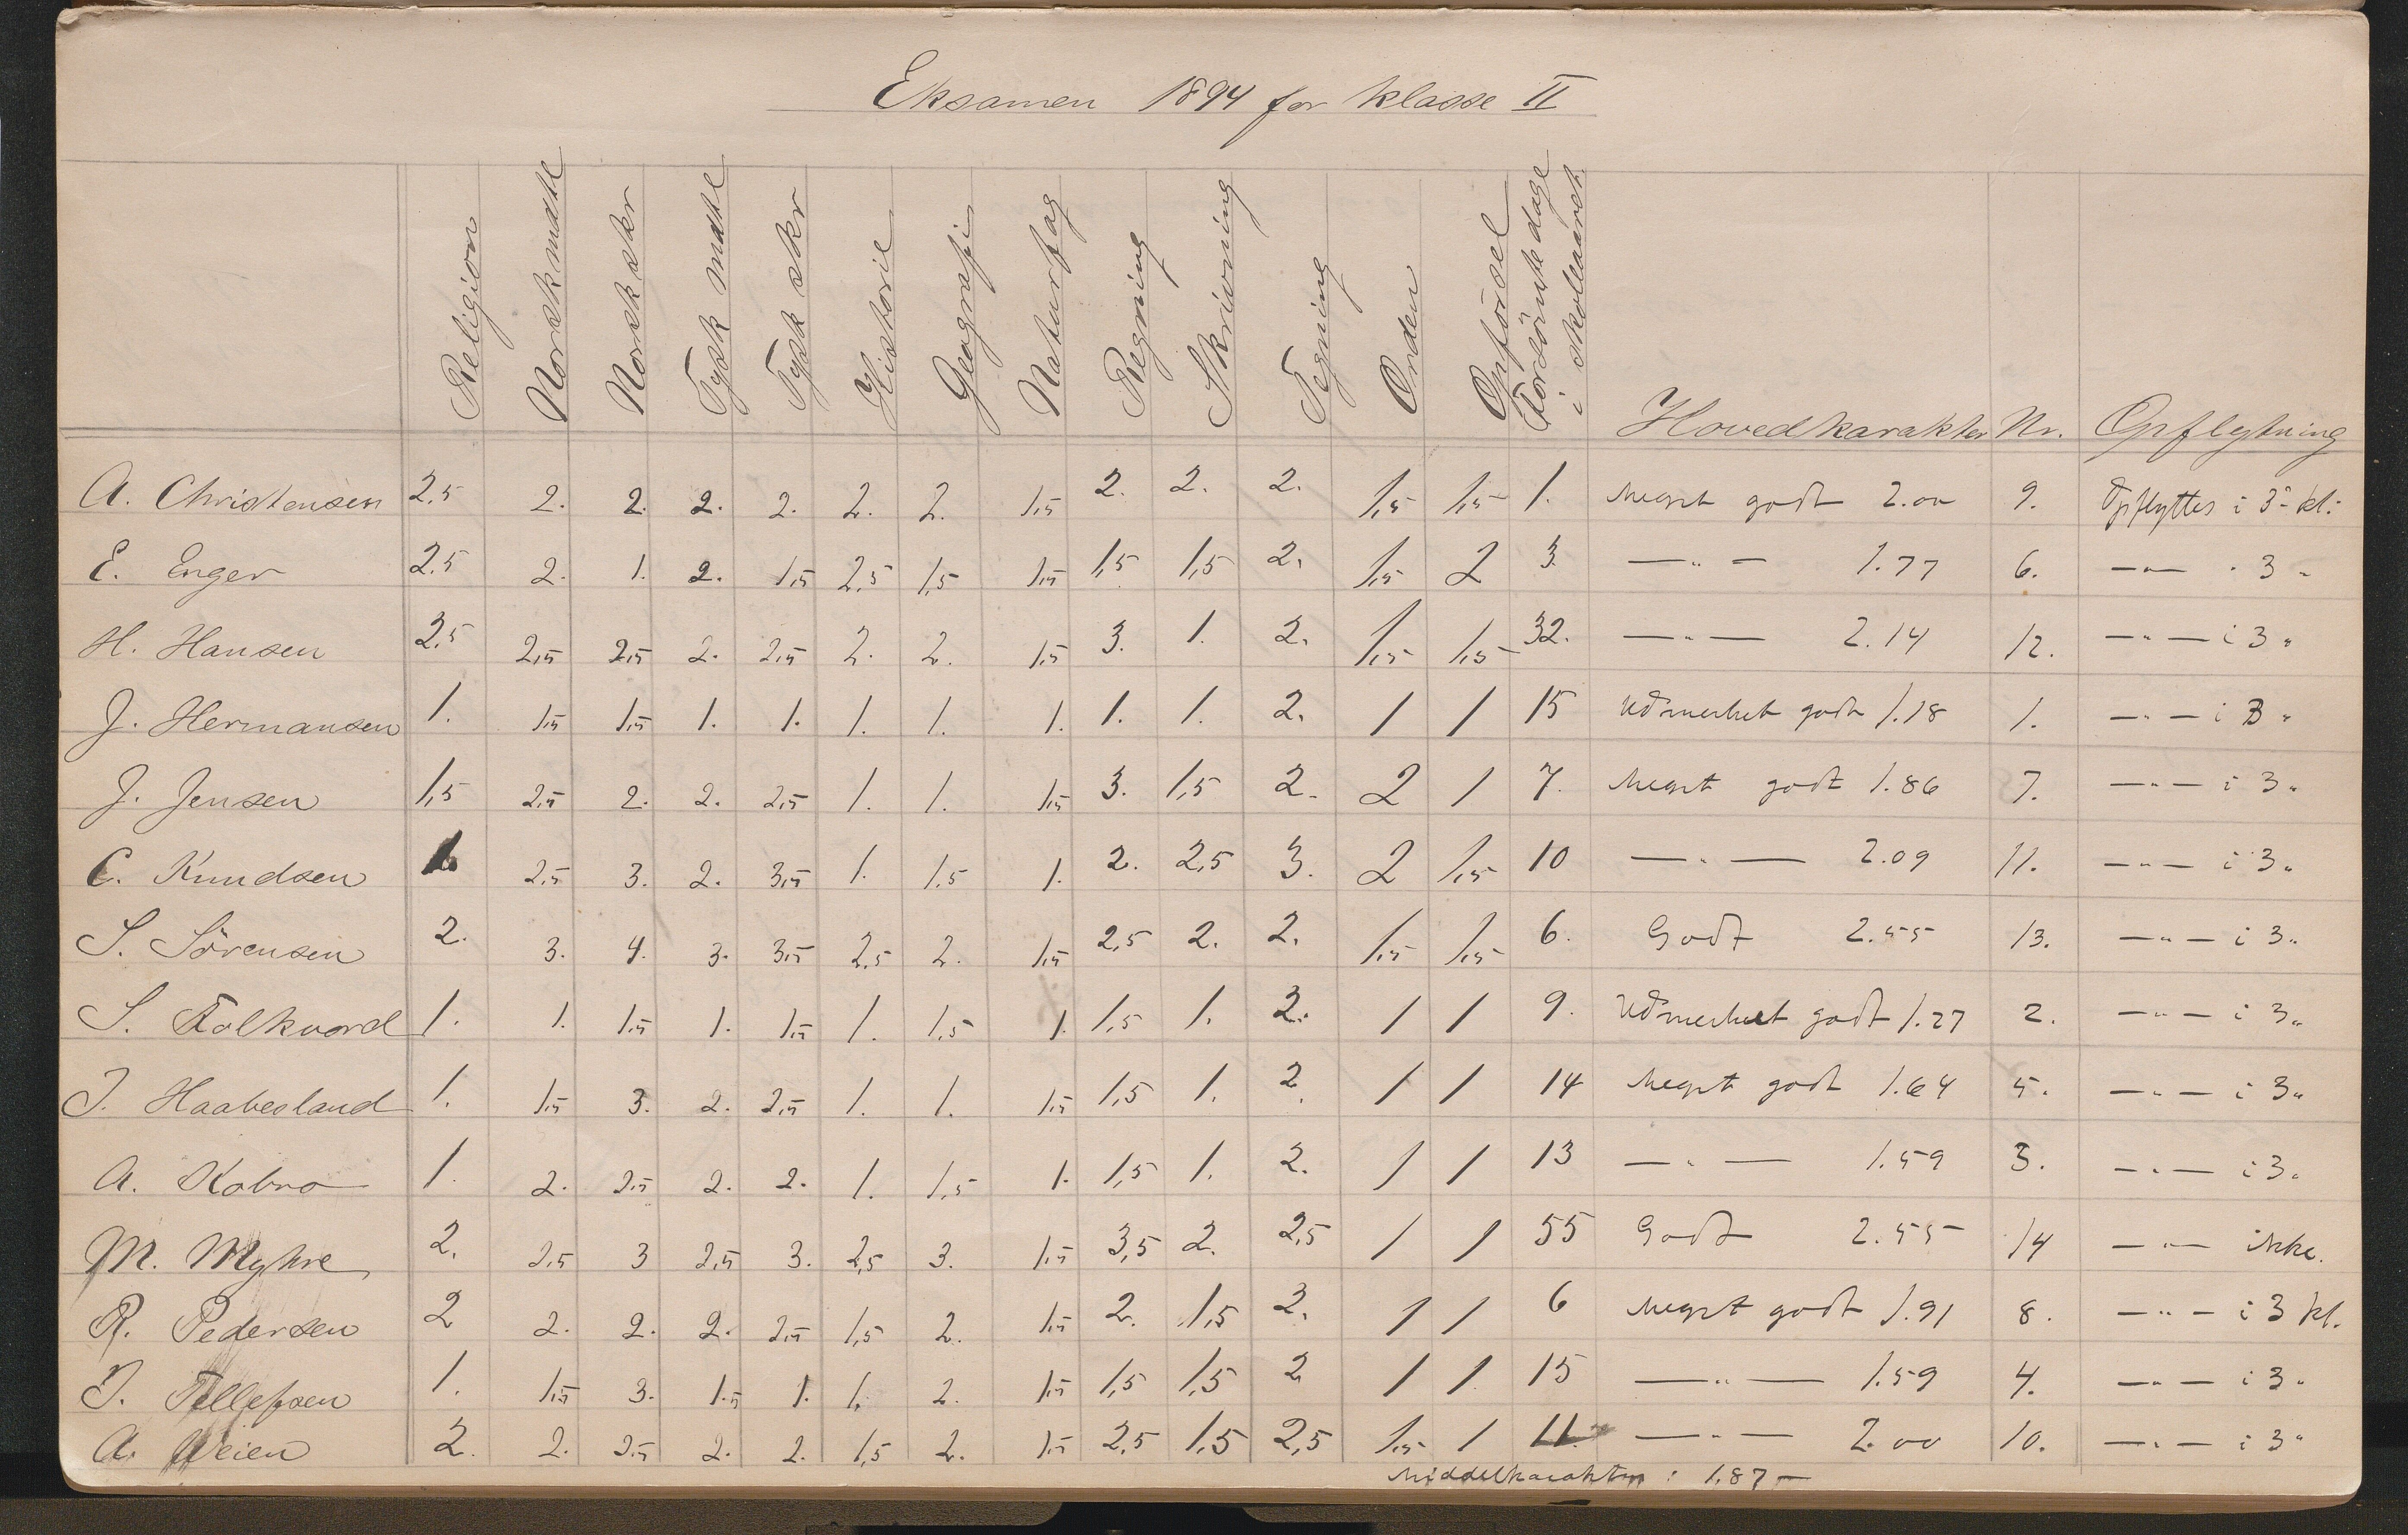 Eksamen 1894 for klasse II
Religion Norsk mdtl Norsk skr Tysk mdtl Tysk skr Historie Geografi Naturfag Regning Skrivning Tegning Orden Opførsel Forsömte dage i skoleaaret. Hovedkarakter Nr. Opflytning
A. Christensen 2,5 2. 2. 2. 2. 2. 2. 1,5 2. 2. 2. 1,5 1,5 1. Meget godt 2.00 9. Opflyttes i 3- kl:
E. Enger 2.5 2. 1. 2. 1,5 2,5 1,5 1,5 1,5 1,5 2. 1,5 2 3. — " — 1.77 6. — " — " 3 "
H. Hansen 2,5 2,5 2,5 2. 2,5 2. 2. 1,5 3. 1. 2. 1,5 1,5 32. — " — 2.14 12. — " — i 3 "
J. Hermansen 1. 1,5 1,5 1. 1. 1. 1. 1. 1. 1. 2. 1 1 15 Udmerket godt 1.18 1. — " — i 3 "
J. Jensen 1,5 2,5 2. 2. 2,5 1. 1. 1,5 3. 1,5 2. 2 1 7. Meget godt 1.86 7. — " — i 3 "
C. Knudsen 1. 2,5 3. 2. 3,5 1. 1,5 1. 2. 2,5 3. 2 1,5 10 — " — 2.09 11. — " — i 3 "
S. Sörensen 2. 3. 4. 3. 3,5 2,5 2. 1,5 2,5 2. 2. 1,5 1,5 6. Godt 2.55 13. — " — i 3 "
S. Folkvord 1. 1. 1,5 1. 1,5 1. 1,5 1. 1,5 1. 2. 1 1 9. Udmerket godt 1.27 2. — " — i 3 "
T. Haabesland 1. 1,5 3. 2. 2,5 1. 1. 1,5 1,5 1. 2. 1 1 14 Meget godt 1.64 5. — " — i 3 "
A. Kobro 1. 2. 2,5 2. 2. 1. 1,5 1. 1,5 1. 2. 1 1 13 — " — 1.59 3. — " — i 3 "
M. Myhre 2. 2,5 3 2,5 3. 2,5 3. 1,5 3,5 2. 2,5 1 1 55 Godt 2.55 14 — " — ikke.
R. Pedersen 2 2. 2. 2. 2,5 1,5 2. 1,5 2. 1,5 2. 1 1 6 Meget godt 1.91 8. — " — i 3 kl.
T. Tellefsen 1. 1,5 3. 1,5 1. 1. 2. 1,5 1,5 1,5 2 1 1. 15 — " — 1.59 4. — " — i 3 "
A. Weien 2. 2. 2,5 2. 2. 1,5 2. 1,5 2,5 1,5 2,5 1,5 1 11. — " — 2.00 10. — " — i 3 "
Middelkarakter : 1.87 —